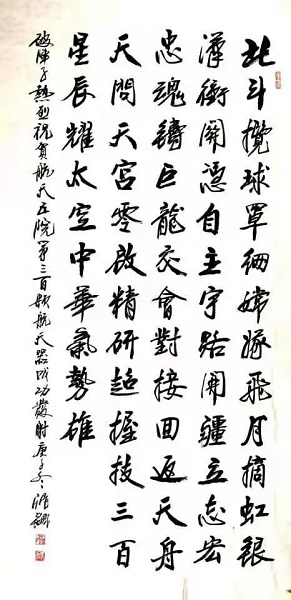 北斗攬球罩網嫦娥飛月摘虹銀
漢衝開憑自主宇路開疆立志宏
忠魂鑄巨龍交會對接回返天舟
天問天宮零啟精研超握技三百
星辰耀太空中華氣勢雄
破陣子熱烈祝賀航天五院第三百顆航天器成功發射庚子冬